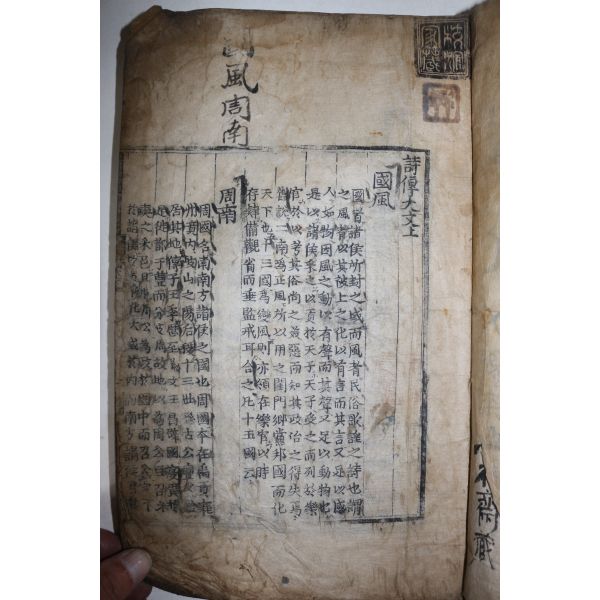 國風周南
詩傳大文上
國風
國者諸侯所封之域而風者民俗歌謠之詩也謂
之風者以其被上之化以有言而其言又足以感
人如物因風之動以有聲而其聲又足以動物也
是以諸侯采之以貢於天子天子受之而列於樂
官於以考其俗尚之美惡而知其政治之得失焉
舊說二南爲正風所以用之閨門鄉黨邦國而化
天下也十三國爲變風則亦領在樂官以時
存肄備觀省而垂監戒耳合之凡十五國云
周南
周國名南南方諸侯之國也周國本在禹貢雍
州境內岐山之陽后稷十三世孫古公亶父始
居其地傳子王季歷至孫文王昌辟國寖廣
於是徙都于豐而分岐周故地以爲周公旦召公
奭之采邑且使周公爲政於國中而召公宣布
於諸侯於是德化大成於內而南方諸侯之
齋藏